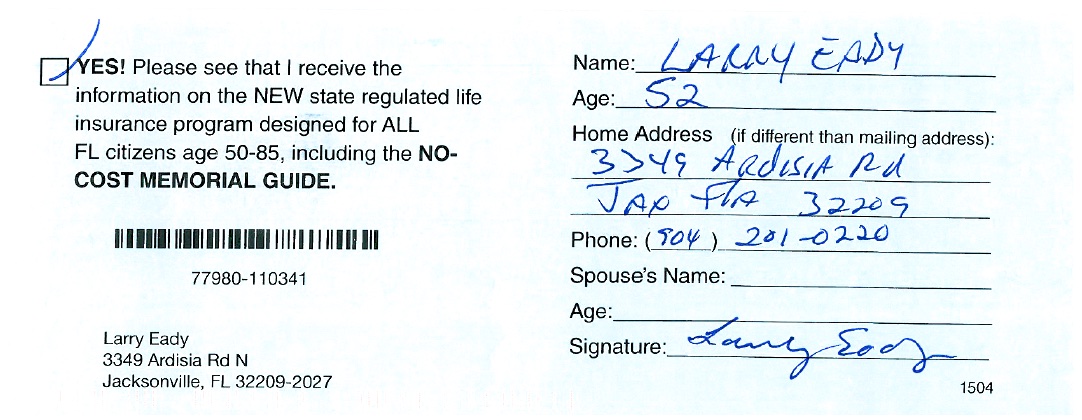 YES! Please see that I receive the
information on the NEW state regulated life
insurance program designed for ALL
FL citizens age 50-85, including the NO-
COST MEMORIAL GUIDE.
77980-110341
Larry Eady
3349 Ardisia Rd N
Jacksonville, FL 32209-2027
Name: LARRY EADY
Age: 52
Home Address (if different than mailing address):
3349 ARDISIA Rd
JAX FLA 32209
Phone: (904) 201-0220
Spouse's Name:
Age:
Signature: Larry Eady
1504